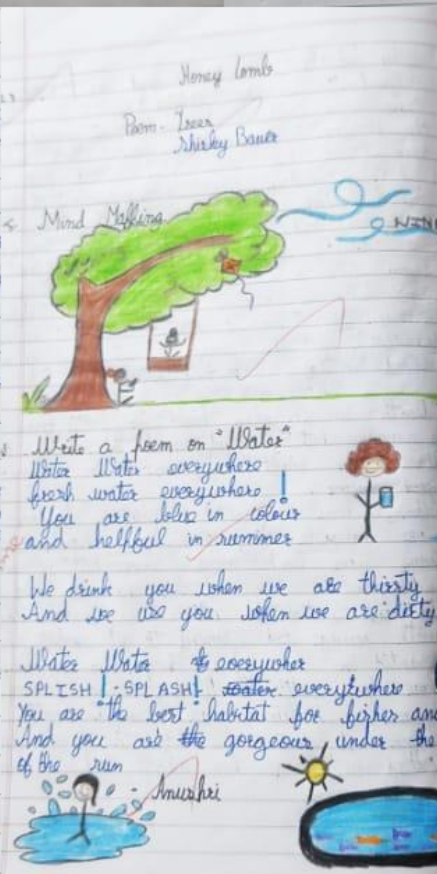 Honey Comb
Poem - Trees
Shirley Bauer
Mind Mapping
WIN
Write a poem on "Water"
Water Water everywhere
fresh water everywhere !
You are blue in colour
and helpful in summer
We drink you when we are thirsty
And we use you when we are dirty
Water Water everywher
SPLISH ! SPLASH! everywhere
You are the best habitat for fishes and
And you are the gorgeous under the
of the sun
- Anushri